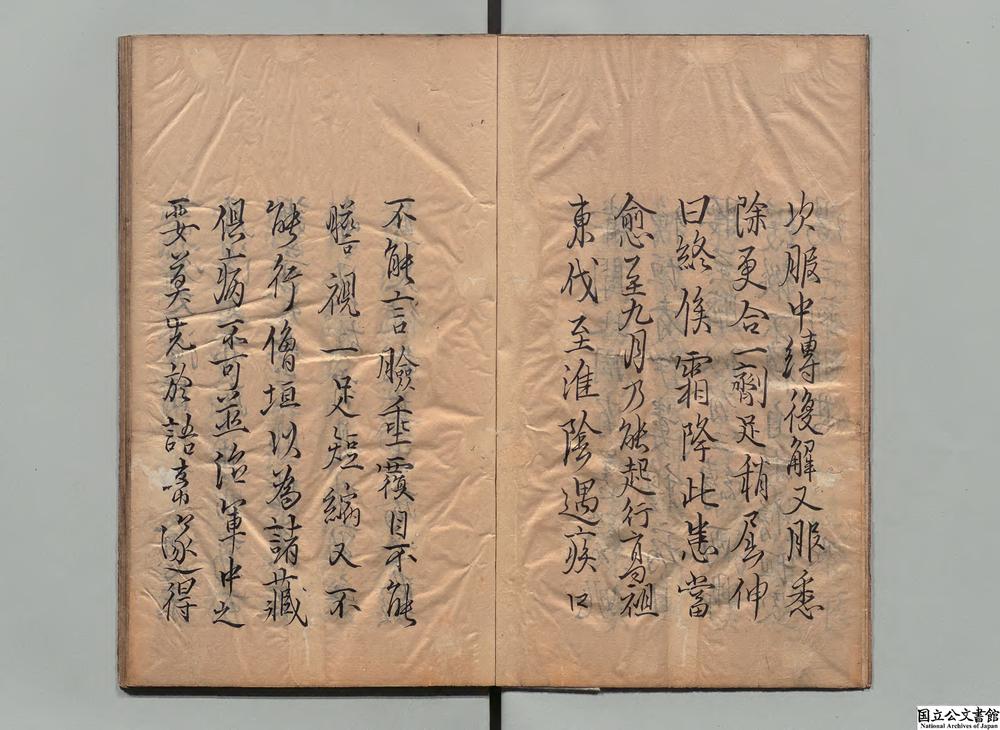 次服中縛後解又服悉
除更合一劑足稍屈伸
曰終俟霜降此患當
愈至九月乃能起行高祖
東伐至淮陰遇疾口
不能言瞼垂覆目不能
瞻視一足短縮又不
能行僧垣以為諸藏
俱病不可並治軍中之
要莫先於語末遂得
国立公文書館
National Archives of Japan